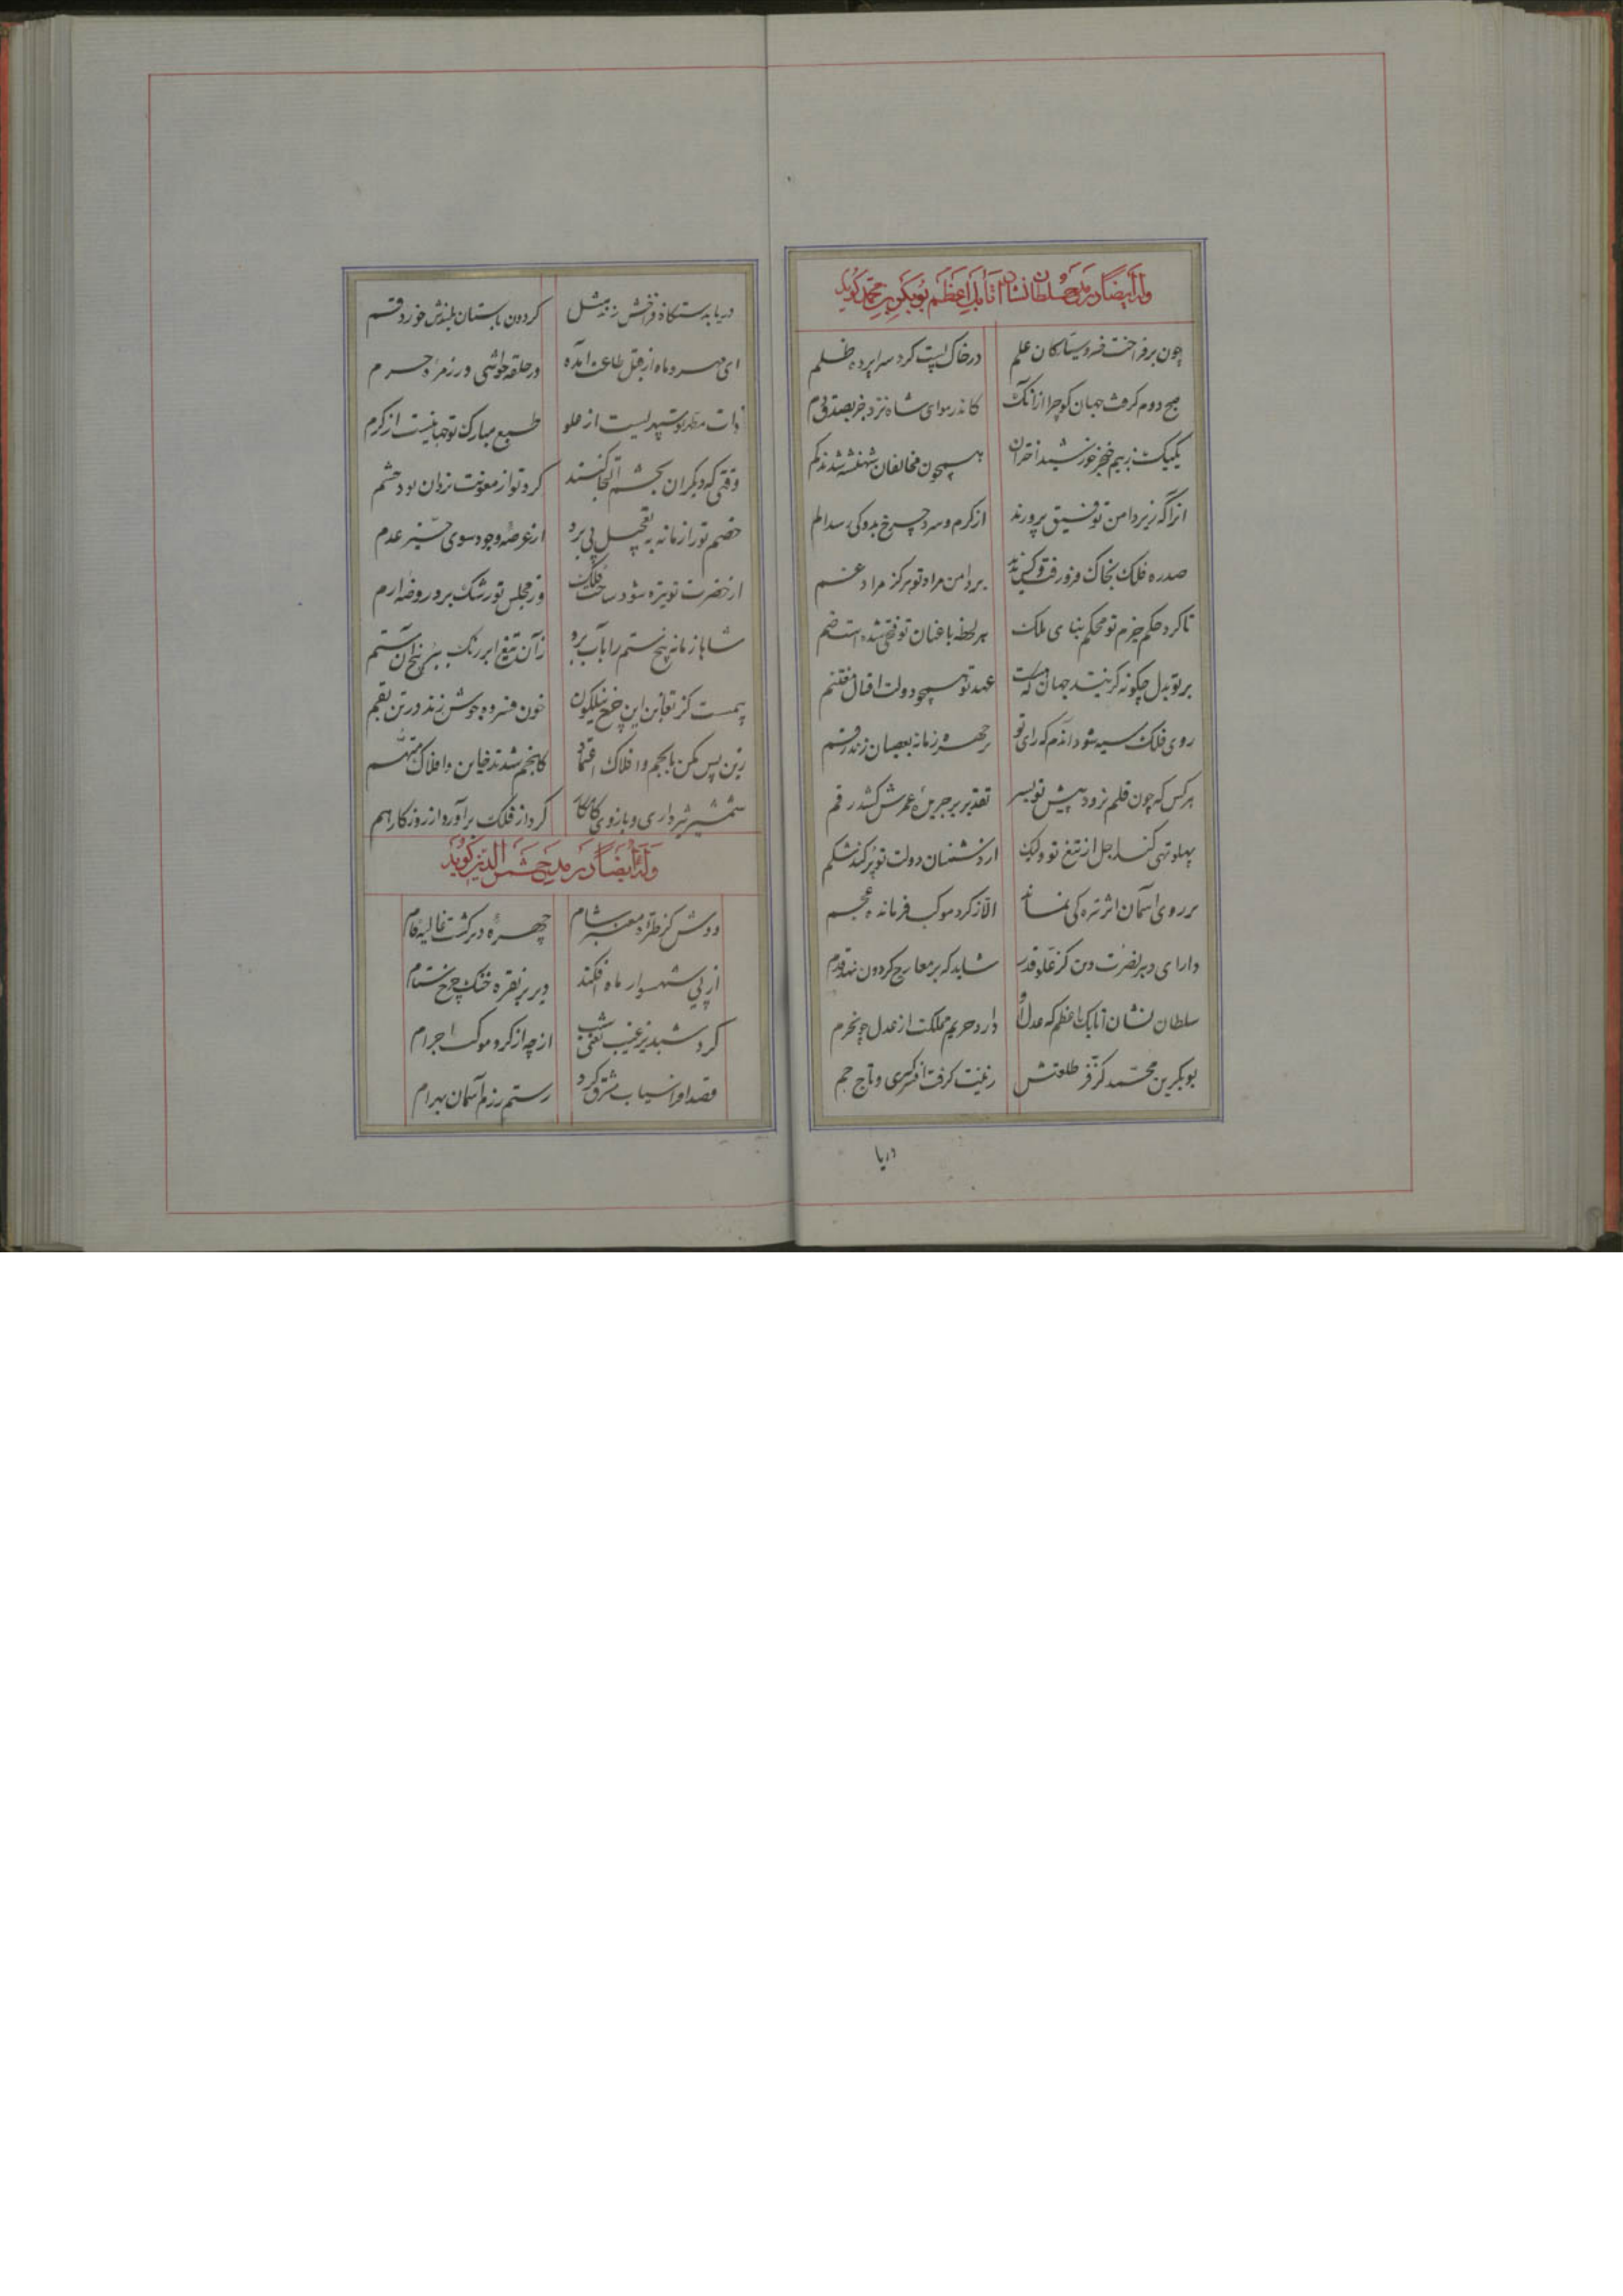 وله ایضا در مدح سلطان نشان اتابک اعظم بوبکر بن محمد گوید
چون برفراخت خسرو سیارگان علم در خاک پست کرد سراپرده ظلم
صبح دوم گرفت جهان گو چرا از آنک کاندر هوای شاه نزد جز بصدق دم
یکیک ز بیم خنجر خورشید اختران همچون مخالفان شهنشه شدند کم
آنرا که زیر دامن توفیق پرورند از گرم و سرد چرخ بدو کی رسد الم
صد ره فلک بخاک فرو رفت و کس ندید بر دامن مراد تو هرگز مراد غم
تا کرد حکم حزم تو محکم بنای ملک هر لحظه با عنان تو فتحی شده است ضم
بر تو بدل چگونه گزیند جهان که هست عهد تو همچو دولت اقبال مغتنم
روی فلک سیه شود آندم که رای تو بر چهره زمانه بعصیان زند رقم
هر کس که چون قلم نرود پیش تو بسر تقدیر بر جریده عمرش کشد رقم
پهلو تهی کند اجل از تیغ تو ولیک از دشمنان دولت تو پر کند شکم
بر روی آسمان اثر تیره کی نماند الا ز گرد موکب فرمانده عجم
دارای دهر نصرت دین کز علو قدر شاید که بر معارج گردون نهد قدم
سلطان نشان اتابک اعظم که عدل او دارد حریم مملکت از عدل چون حرم
بوبکر بن محمد کز فر طلعتش زینت گرفت افسر کسری و تاج جم
دریا
دریا به دستگاه فراخش زند مثل گردون بآستان بلندش خورد قسم
ای مهر و ماه از قبل طاعت آمده در حلقه حواشی و در زمره حشم
ذات مطهر تو سپهریست از علو طبع مبارک تو جهانیست از کرم
وقتی که دیگران بحشم التجا کنند گرد تو از معونت یزدان بود حشم
خصم تو را زمانه به تعجیل پی برد از عرصه وجود سوی حیز عدم
از حضرت تو تیره شود ساحت فلک وز مجلس تو رشک برد روضه ارم
شاها زمانه بیخ ستم را بآب برد زآن تیغ ابر رنگ ببر بیخ آن ستم
بیمست کز تغابن این چرخ نیلگون خون فسرده جوش زند در تن بقم
زین پس مکن بانجم و افلاک اعتماد کانجم شدند خاین و افلاک متهم
شمشیر تیز داری و بازوی کامکار گرد از فلک برآور و از روزگار هم
وله ایضا در مدح شمس الدین گوید
دوش کز طره معنبر شام چهره دهر گشت غالیه فام
از پی شهسوار ماه افکند دهر بر نقره خنک چرخ ستام
گرد شبدیز غیب تعبیه شب از چه از گرد موکب اجرام
قصد افراسیاب مشرق کرد رستم رزم آسمان بهرام